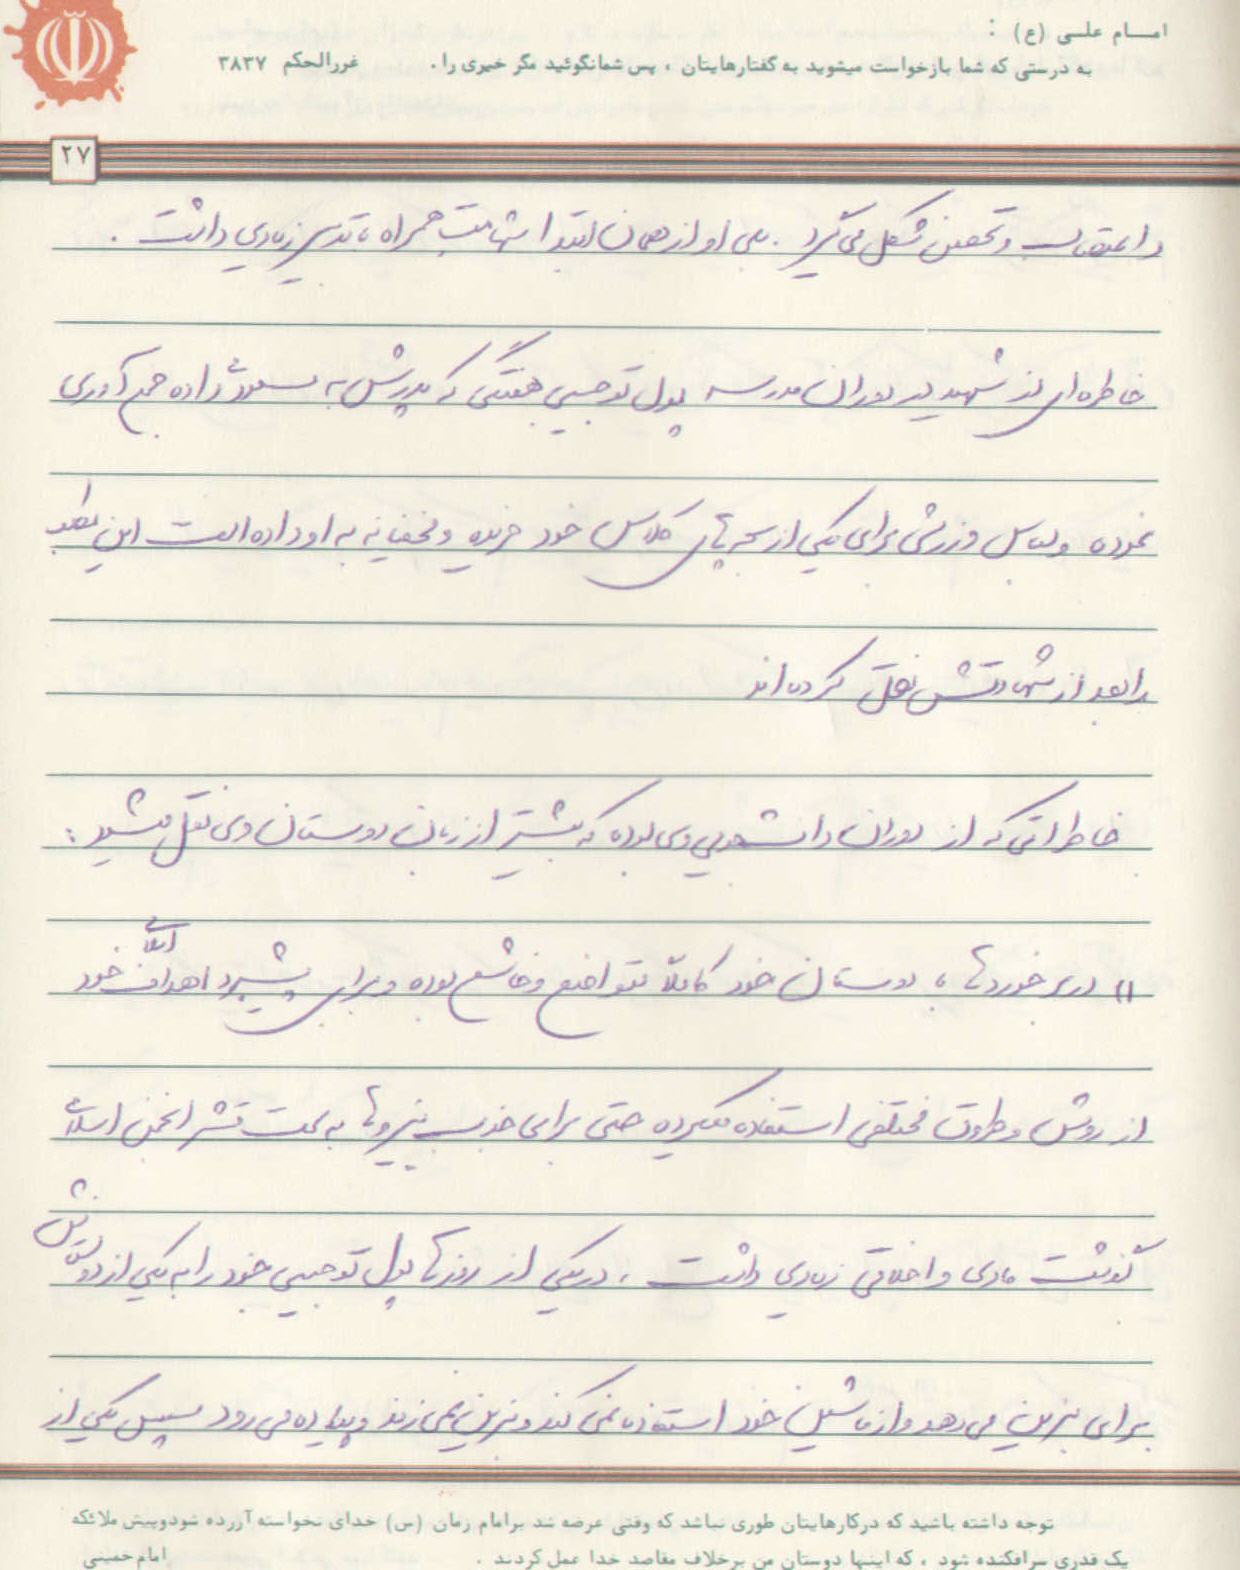 امـــام علــی (ع) :
به درستی که شما بازخواست میشوید به گفتارهایتان ، پس شمانگوئید مگر خیری را . غررالحکم ۳۸۳۷
۲۷
و اعتصاب و تحصن شکل می گیرد . بلی او از همان ابتدا شهامت همراه با تدبیر زیادی داشت .
خاطره ای از شهید در دوران مدرسه پول توجیبی هفتگی که پدرش به مسعود داده جمع آوری
نموده و لباس ورزشی برای یکی از بچه های کلاس خود خریده و مخفیانه به او داده است این مطلب
را بعد از شهادتش نقل کرده اند
خاطراتی که از دوران دانشجویی وی بوده که بیشتر از زبان دوستان وی نقل میشود :
۱) در برخوردها با دوستان خود کاملا متواضع و خاشع بوده و برای پیشبرد اهداف اسلامی خود
از روش و طرق مختلفی استفاده میکرده حتی برای جذب نیروها به سمت قشر انجمن اسلامی
گذشت مادی و اخلاقی زیادی داشت ، در یکی از روزها پول توجیبی خود را به یکی از دوستانش
برای بنزین می دهد و از ماشین خود استفاده نمی کند و بنزین نمی زند و پیاده می رود سپس یکی از
توجه داشته باشید که درکارهایتان طوری نباشد که وقتی عرضه شد برامام زمان (س) خدای نخواسته آزرده شودوپیش ملائکه
یک قدری سرافکنده شود ، که اینها دوستان من برخلاف مقاصد خدا عمل کردند . امام خمینی